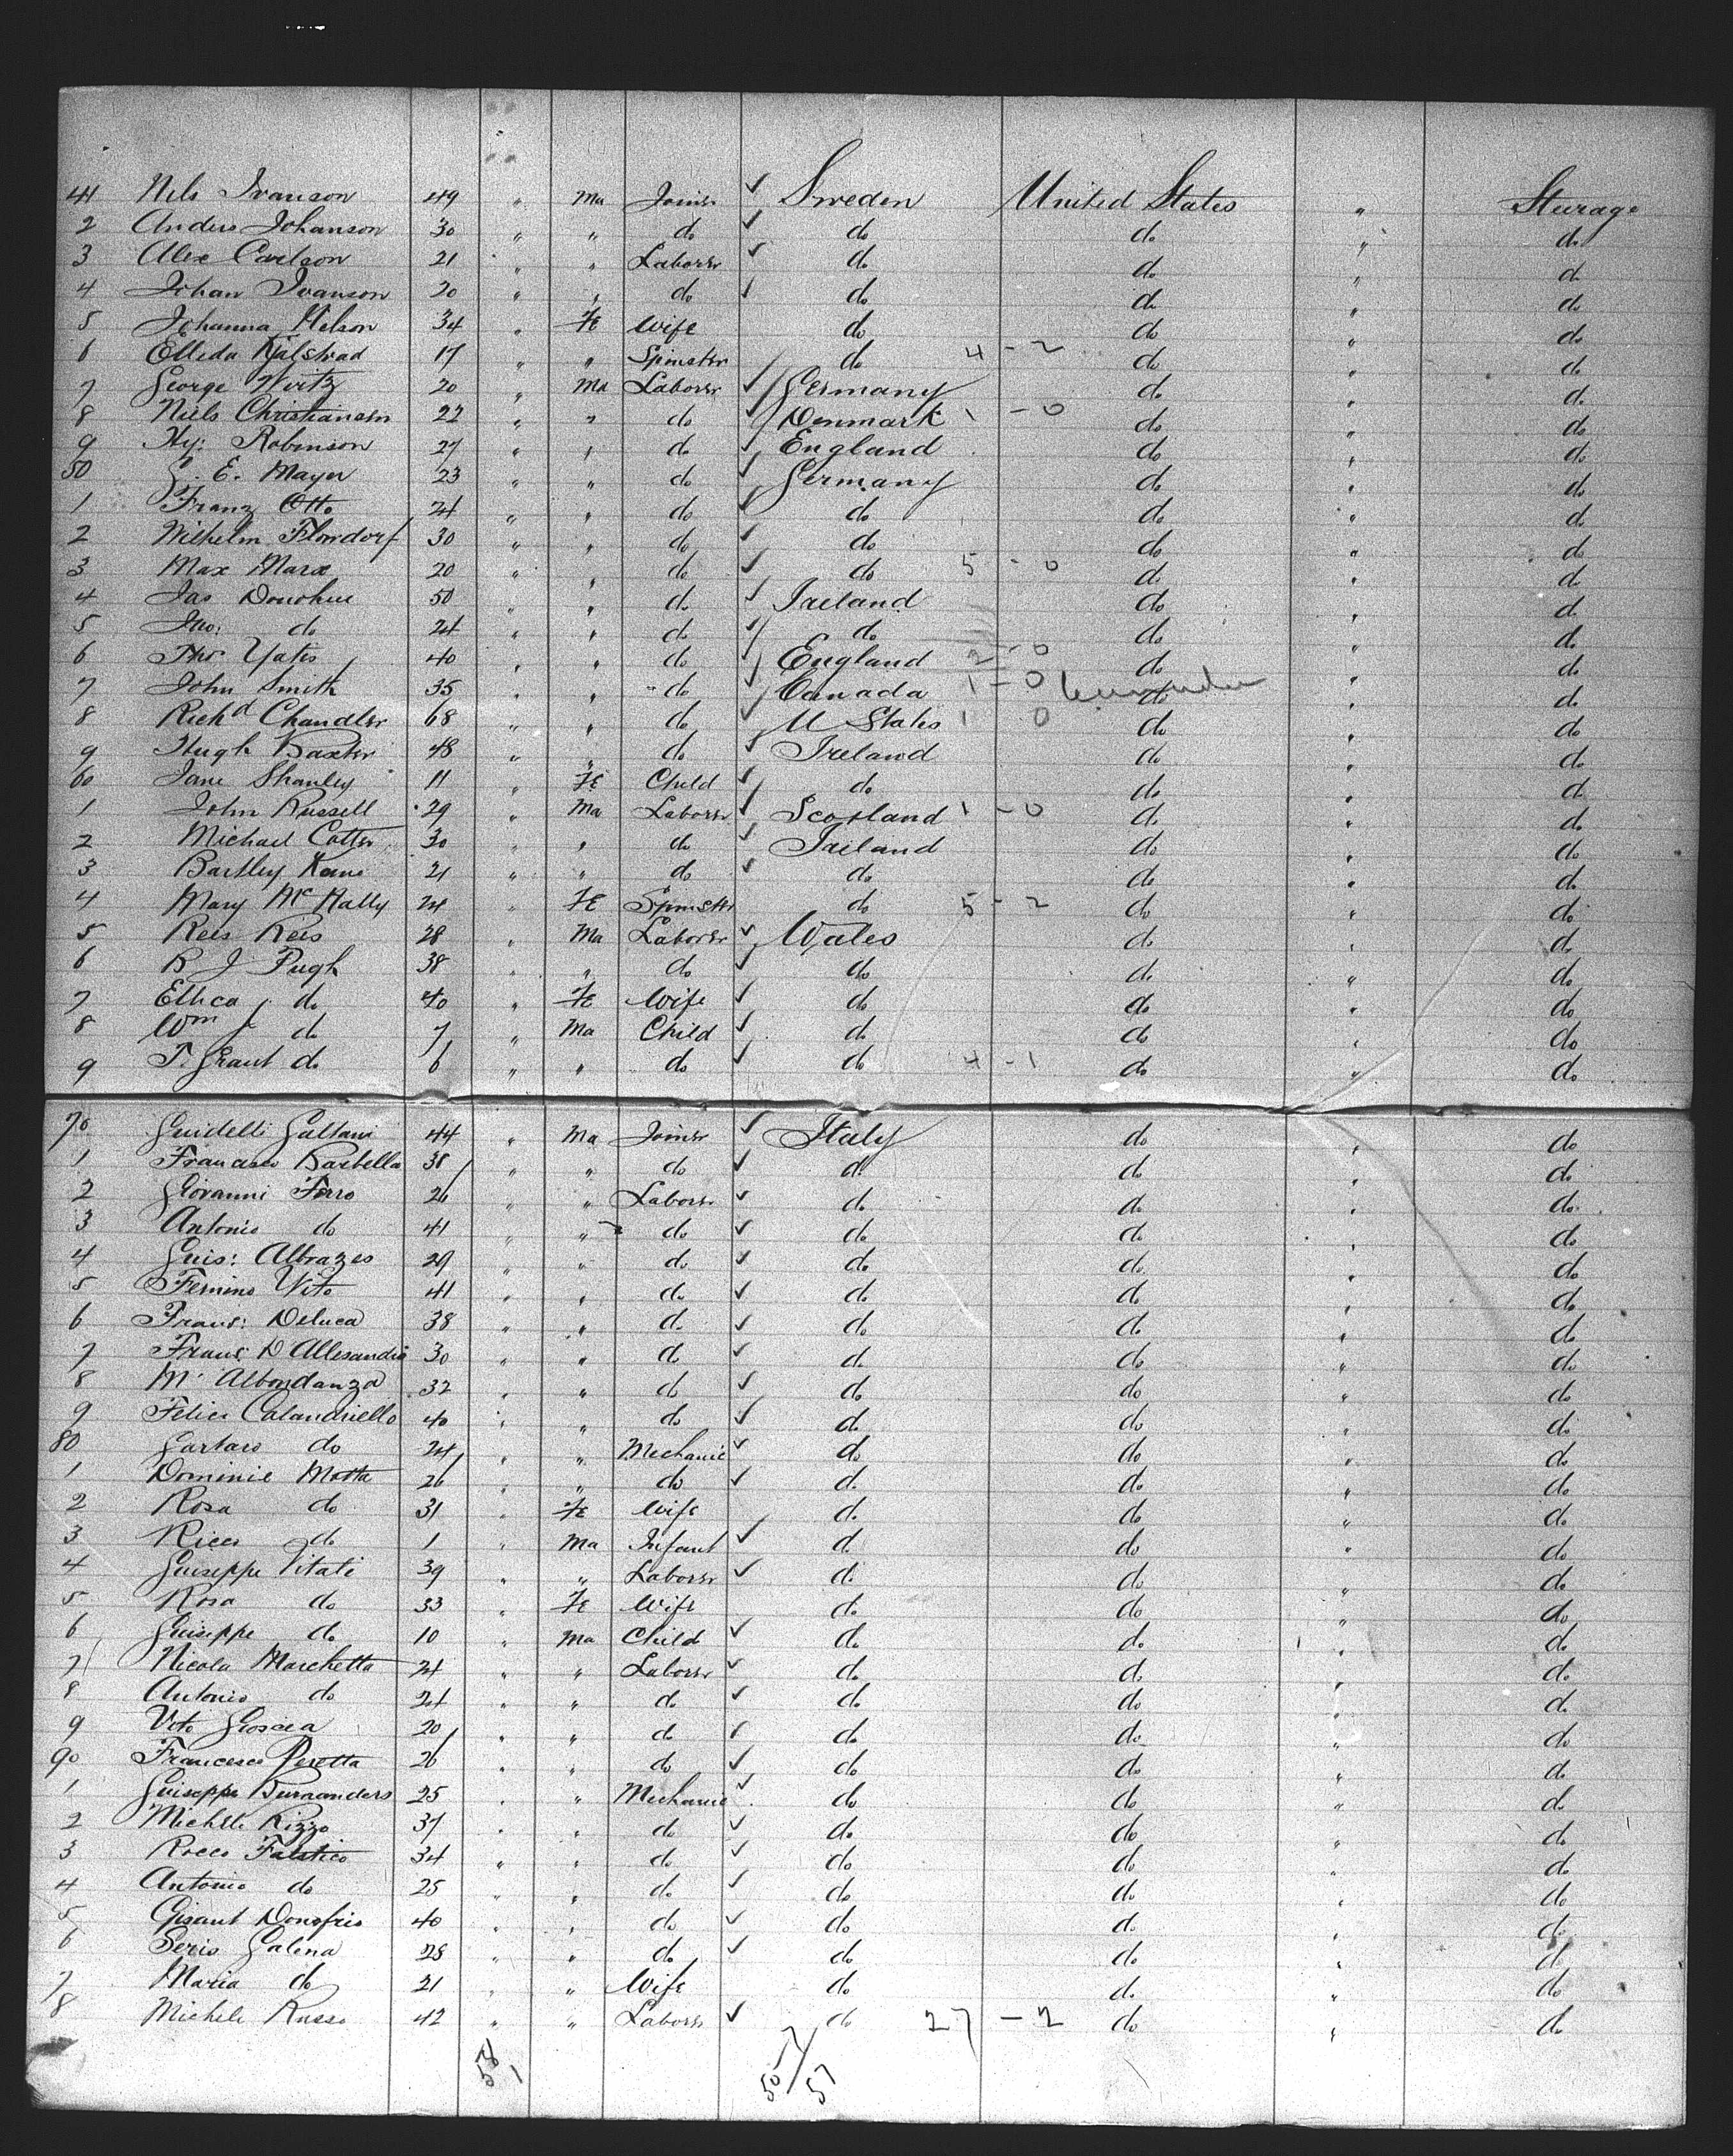 41 Nels Ivanson 49 " Ma Joiner ✓ Sweden United States " Sturage
2 Anders Johanson 30 " " do ✓ do do " do
3 Alex Carlson 21 " " Laborer ✓ do do " do
4 Johan Ivanson 20 " " do ✓ do do " do
5 Johanna Nelson 34 " Fe Wife do do " do
6 Elleda 17 " " Spinster do 4 - 2 do " do
7 George Wirtz 20 " Ma Laborer ✓ Germany do " do
8 Niels Christiansen 22 " " do ✓ Denmark 1 - 0 do " do
9 Hy: Robinson 27 " " do ✓ England do " do
50 G. E. Mayer 23 " " do ✓ Germany do " do
1 Franz Otto 24 " " do ✓ do do " do
2 Wilhelm Flondorf 30 " " do ✓ do do " do
3 Max Marx 20 " " do ✓ do 5 - 0 do " do
4 Jas Donohue 50 " " do ✓ Ireland do " do
5 Jno: do 24 " " do ✓ do do " do
6 Thos Yates 40 " " do ✓ England 2 - 0 do " do
7 John Smith 35 " " do ✓ Canada 1 - 0 do " do
8 Richd Chandler 68 " " do ✓ U States 1 0 do " do
9 Hugh Baxter 48 " " do ✓ Ireland do " do
60 Jane Shanley 11 " Fe Child ✓ do do " do
1 John Russell 29 " Ma Laborer ✓ Scotland 1 - 0 do " do
2 Michael Cotter 30 " " do ✓ Ireland do " do
3 Bartley Kane 21 " " do ✓ do do " do
4 Mary McNally 24 " Fe Spinster do 5 - 2 do " do
5 Rees Rees 28 " Ma Laborer ✓ Wales do " do
6 R J Pugh 38 " " do ✓ do do " do
7 do 40 " Fe Wife ✓ do do " do
8 Wm J do 7 " Ma Child ✓ do do " do
9 T. Grant do 6 " " do ✓ do 4 - 1 do " do
70 Guidelli Galtani 44 " Ma Joiner ✓ Italy do " do
1 Francisco Barbella 38 " " do ✓ do do " do
2 Giovanni Forro 26 " " Laborer ✓ do do " do
3 Antonio do 41 " " do ✓ do do " do
4 Guis: Albrazes 29 " " do ✓ do do " do
5 Femino Vito 41 " " do ✓ do do " do
6 Frans: Deluca 38 " " do ✓ do do " do
7 Frans: D Allesandio 30 " " do ✓ do do " do
8 M. Abbondanza 32 " " do ✓ do do " do
9 Felice Calandriello 40 " " do ✓ do do " do
80 do 24 " " Mechanic ✓ do do " do
1 Dominic Motta 26 " " do ✓ do do " do
2 Rosa do 31 " Fe Wife do do " do
3 Ricco do 1 " Ma Infant ✓ do do " do
4 Guiseppe Vitati 39 " " Laborer ✓ do do " do
5 Rosa do 33 " Fe Wife do do " do
6 Guiseppe do 10 " Ma Child ✓ do do " do
7 Nicola Marchetta 24 " " Laborer ✓ do do " do
8 Antonio do 24 " " do ✓ do do " do
9 Vito Gioscia 20 " " do ✓ do do " do
90 Francesco Peretta 26 " " do ✓ do do " do
1 Guiseppe 25 " " Mechanic ✓ do do " do
2 Michele Rizzo 37 " " do ✓ do do " do
3 Rocco Falatico 34 " " do ✓ do do " do
4 Antonio do 25 " " do ✓ do do " do
5 Gisant Donofrio 40 " " do ✓ do do " do
6 Serio Galena 28 " " do ✓ do do " do
7 Maria do 21 " " Wife do do " do
8 Michele Russo 42 " " Laborer ✓ do 27 - 2 do " do
50-7/57